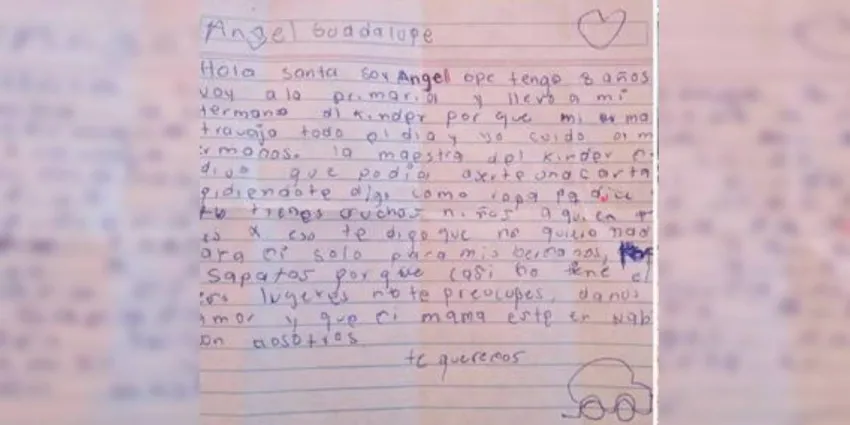 Angel Guadalupe
Hola santa soy Angel ope tengo 8 años
voy a la primaria y llevo a mi
termano dl kinder por que mi ma
travaja todo el dia y yo cuido a m
rmanos. la maestra del kinder
dijo que podia axerte una carta
pidiendote digi como ropa pa dice
tu tienes muchos niños a quien
es x eso te digo que no quiero nad
ara mi solo para mis hermanos,
sapatos por que casi no tene el
lugeres no te preocupes, danos
amor y que mi mama este en nab
on nosotros
te queremos